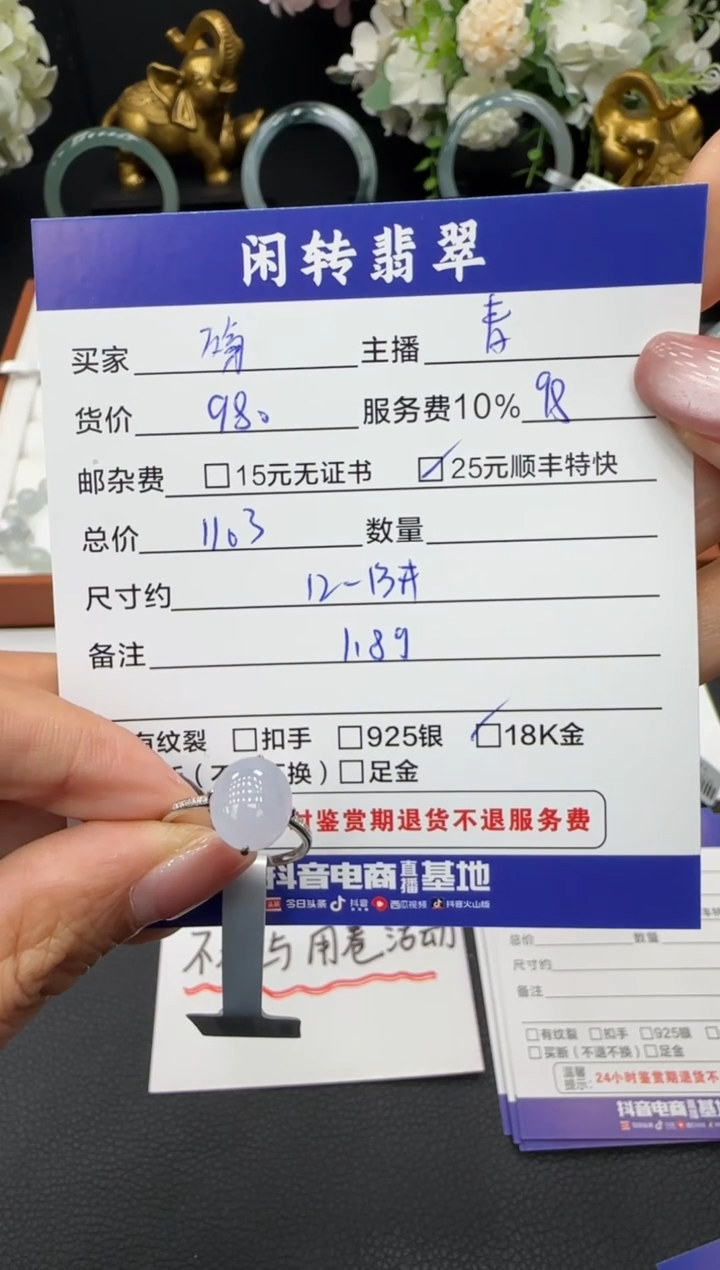 闲转翡翠
买家 主播 青
货价 980 服务费10% 98
邮杂费 □15元无证书 ☑25元顺丰特快
总价 1103 数量
尺寸约 12-13#
备注 1.89
有纹裂 □扣手 □925银 ☑18K金
(不 换) □足金
时鉴赏期退货不退服务费
抖音电商直播基地
头条 今日头条 抖音 西瓜视频 抖音火山版
不 与用卷活动
总价 数量
尺寸约
备注
□有纹裂 □扣手 □925银 □
□买断(不退不换) □足金
温馨提示: 24小时鉴赏期退货不
抖音电商直播基